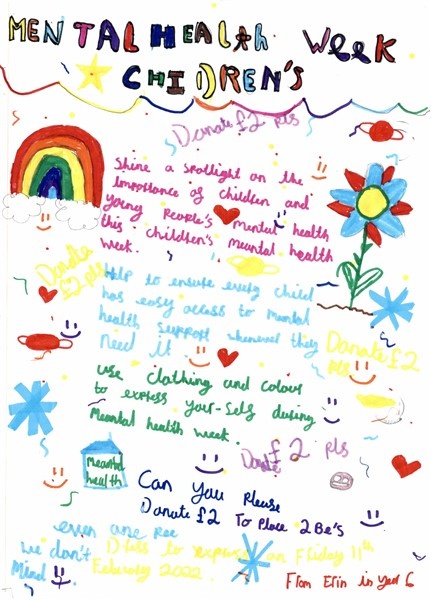 MENTAL HEALTH WEEK
CHILDREN'S
Donate £2 pls
Shine a spotlight on the
importance of children and
young People's mental health
this children's meantal health
week.
Donate
£2 pls
Help to ensure every child
has easy access to mental
health support whenever they
need it
Donate £2
pls
use clothing and colour
to express your-self during
Meantal health week.
Donate £2 pls
Meantal
health
Can you please
Donate £2 To Place 2Be's
even one
we don't
Mind
Dress to express on Friday 11th
February 2022
From Erin in year 6